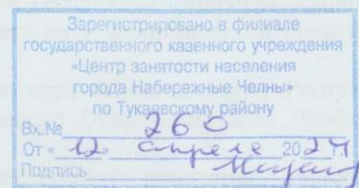 Зарегистрировано в филиале
государственного казенного учреждения
«Центр занятости населения
города Набережные Челны»
по Тукаевскому району
Вх.№ 260
От « 12 » апреля 2024 г.
Подпись